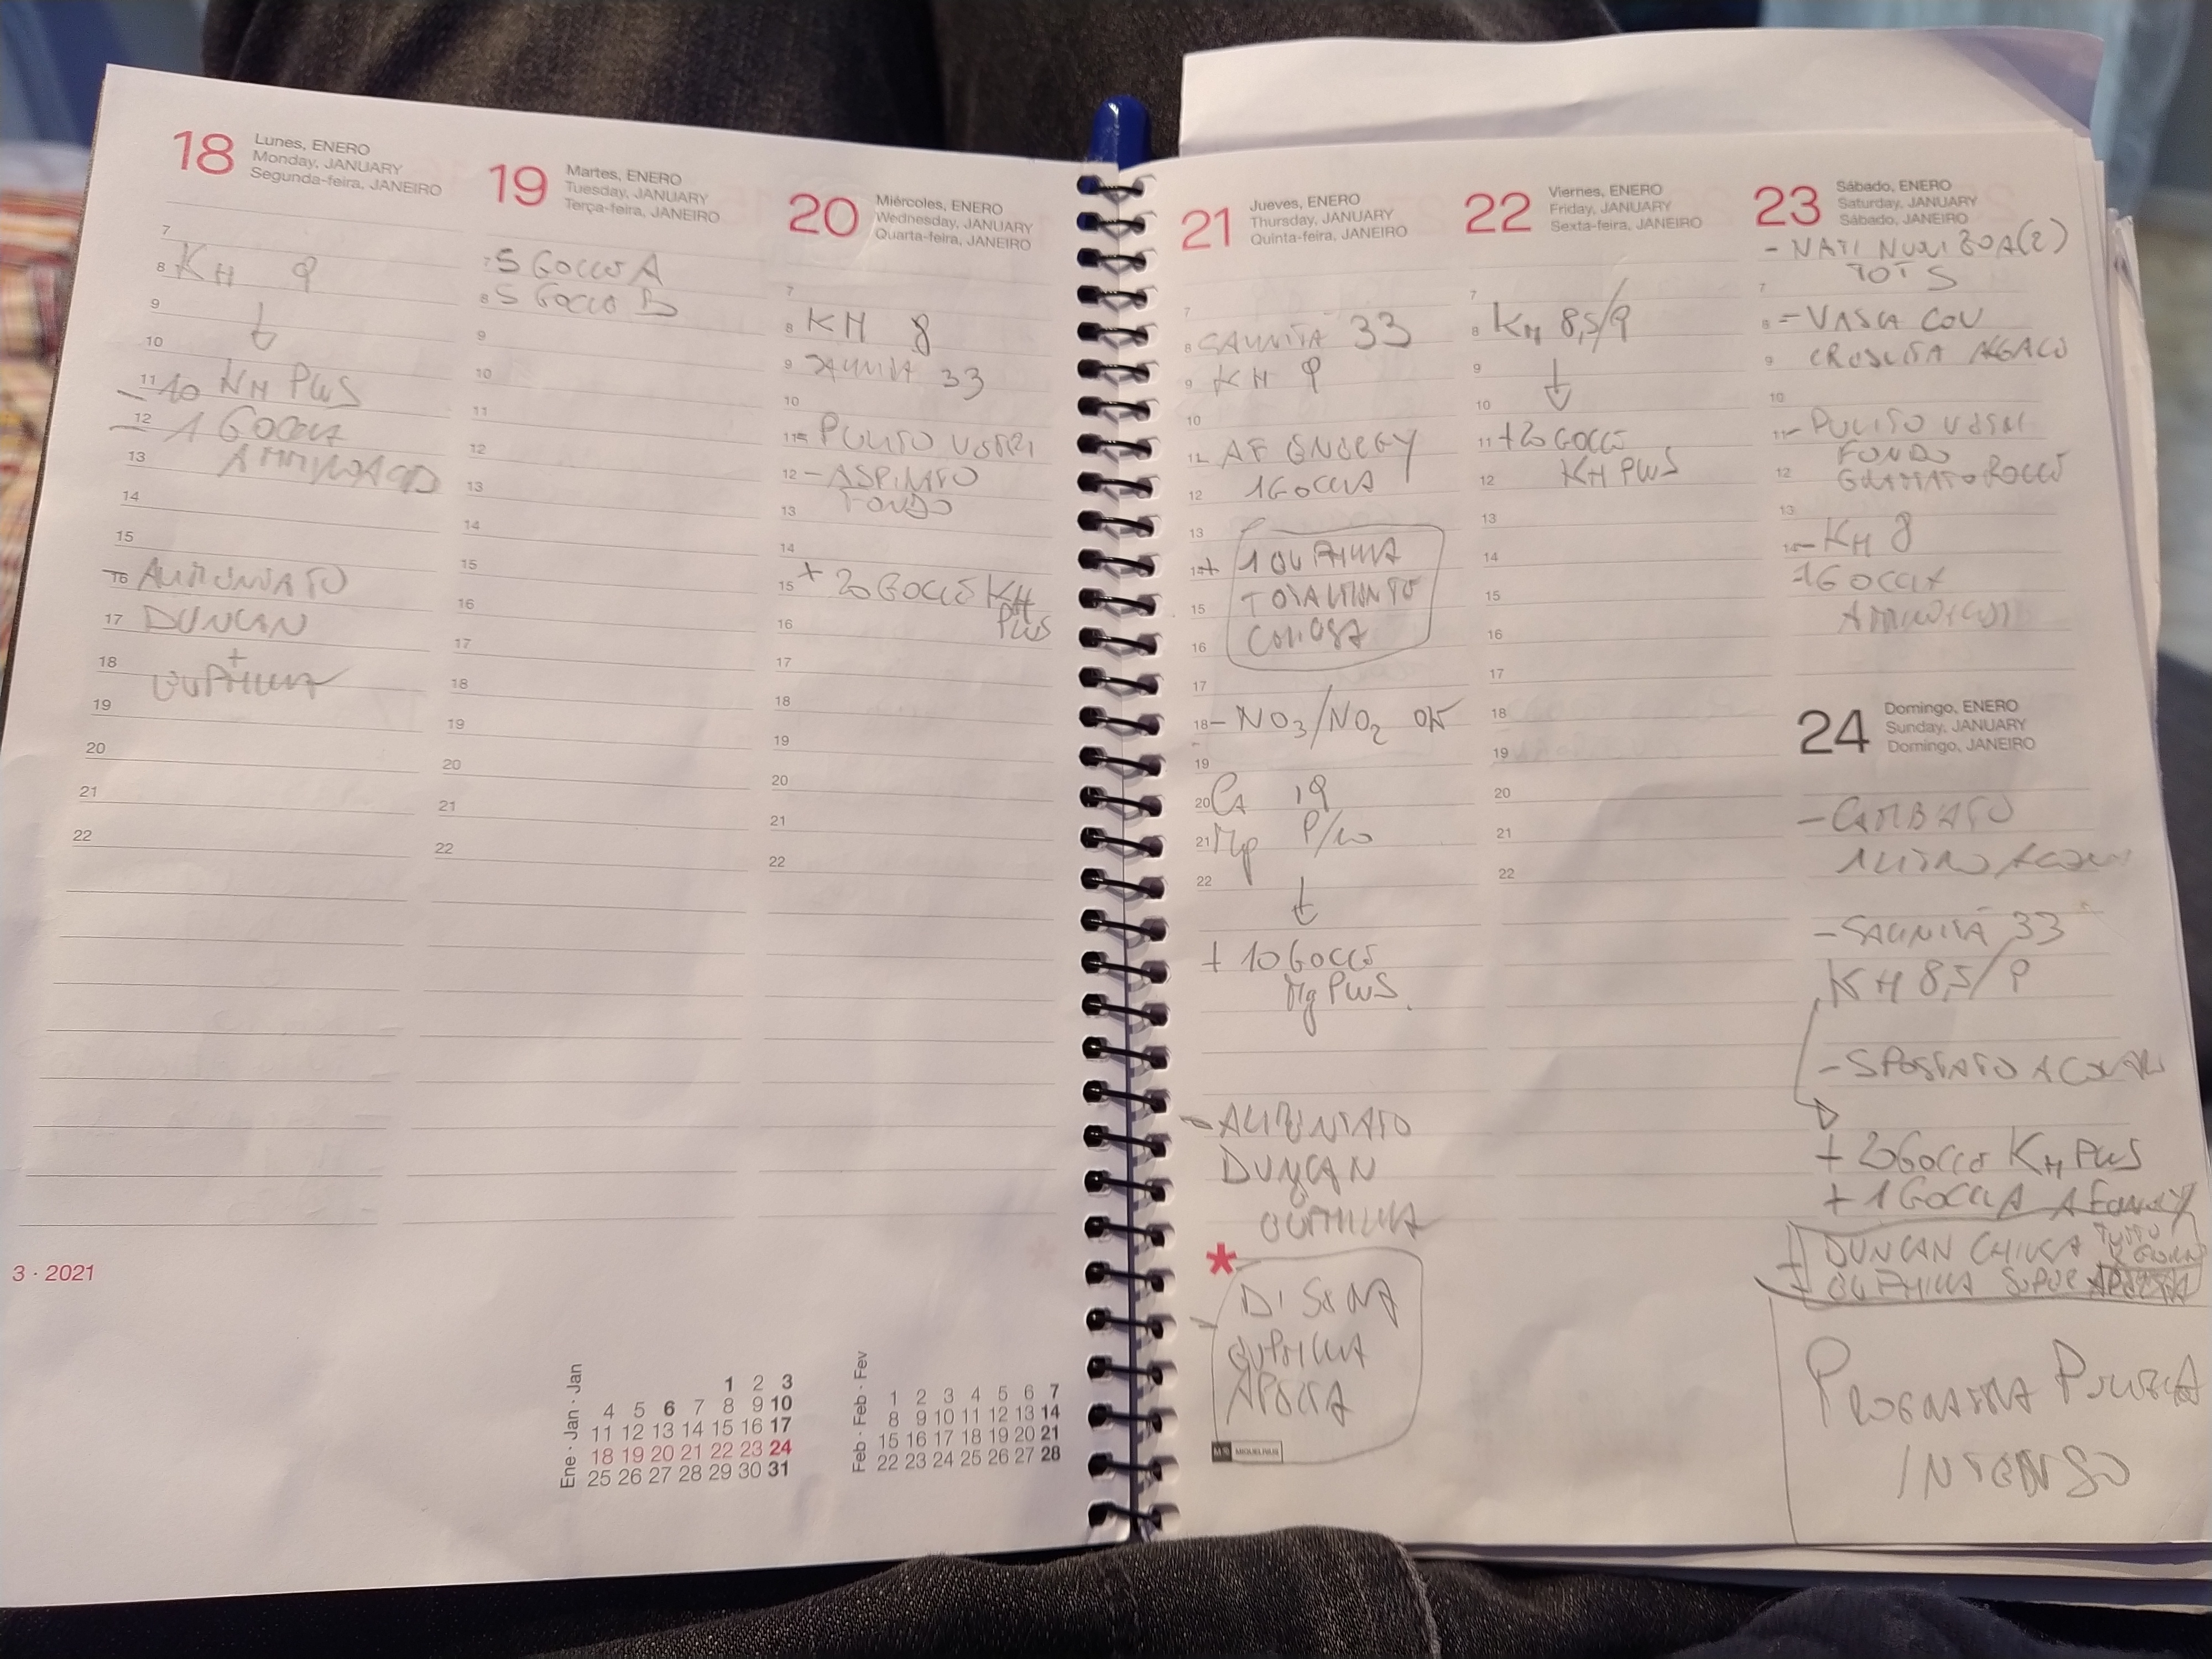 18 Lunes, ENERO
Monday, JANUARY
Segunda-feira, JANEIRO
7
8 KH 9
9
10
11 - 10 KH PLUS
12 - 1 GOCCIA
13 AMMINOACID
14
15
16 - ALIMENTATO
17 DUNCAN
+
18 EUPHILLIA
19
20
21
22
3 · 2021
19 Martes, ENERO
Tuesday, JANUARY
Terça-feira, JANEIRO
7 5 GOCCE A
8 5 GOCCE B
9
10
11
12
13
14
15
16
17
18
19
20
21
22
20 Miércoles, ENERO
Wednesday, JANUARY
Quarta-feira, JANEIRO
7
8 KH 8
9 SALINITÀ 33
10
11 - PULITO VETRI
12 - ASPIRATO
FONDO
13
14
15 + 20 GOCCE KH
PLUS
16
17
18
19
20
21
22
Ene · Jan · Jan
1 2 3
4 5 6 7 8 9 10
11 12 13 14 15 16 17
18 19 20 21 22 23 24
25 26 27 28 29 30 31
Feb · Feb · Fev
1 2 3 4 5 6 7
8 9 10 11 12 13 14
15 16 17 18 19 20 21
22 23 24 25 26 27 28
21 Jueves, ENERO
Thursday, JANUARY
Quinta-feira, JANEIRO
7
8 SALINITÀ 33
9 KH 9
10
11 - AF ENERGY
12 1 GOCCIA
13
14 + 1 EUPHILLIA
15 TOTALMENTE
16 CHIUSA
17
18 - NO3/NO2 OK
19
20 Ca
21 Mg
22
+ 10 GOCCE
Mg PLUS.
- ALIMENTATO
DUNCAN
EUPHILLIA
*
- DI SERA
EUPHILLIA
APERTA
MIQUELRIUS
22 Viernes, ENERO
Friday, JANUARY
Sexta-feira, JANEIRO
7
8 KH 8,5/9
9
10
11 + 20 GOCCE
12 KH PLUS
13
14
15
16
17
18
19
20
21
22
23 Sábado, ENERO
Saturday, JANUARY
Sábado, JANEIRO
- NATI NUOVI ZOA(2)
TOT 5
7
8 - VASCA CON
9 CRESCITA ALGALE
10
11 - PULITO VETRI
FONDO
12
13
14 - KH 8
1 GOCCIA
AMMINOACIDI
24 Domingo, ENERO
Sunday, JANUARY
Domingo, JANEIRO
- CAMBIATO
1 LITRO ACQUA
- SALINITÀ 33
KH 8,5/9
- SPOSTATO
+ 20 GOCCE KH PLUS
+ 1 GOCCIA AF ENERGY
+ DUNCAN CHIUSA
+ EUPHILLIA SUPER APERTA
PROGRAMMA PULIZIA
INTENSO